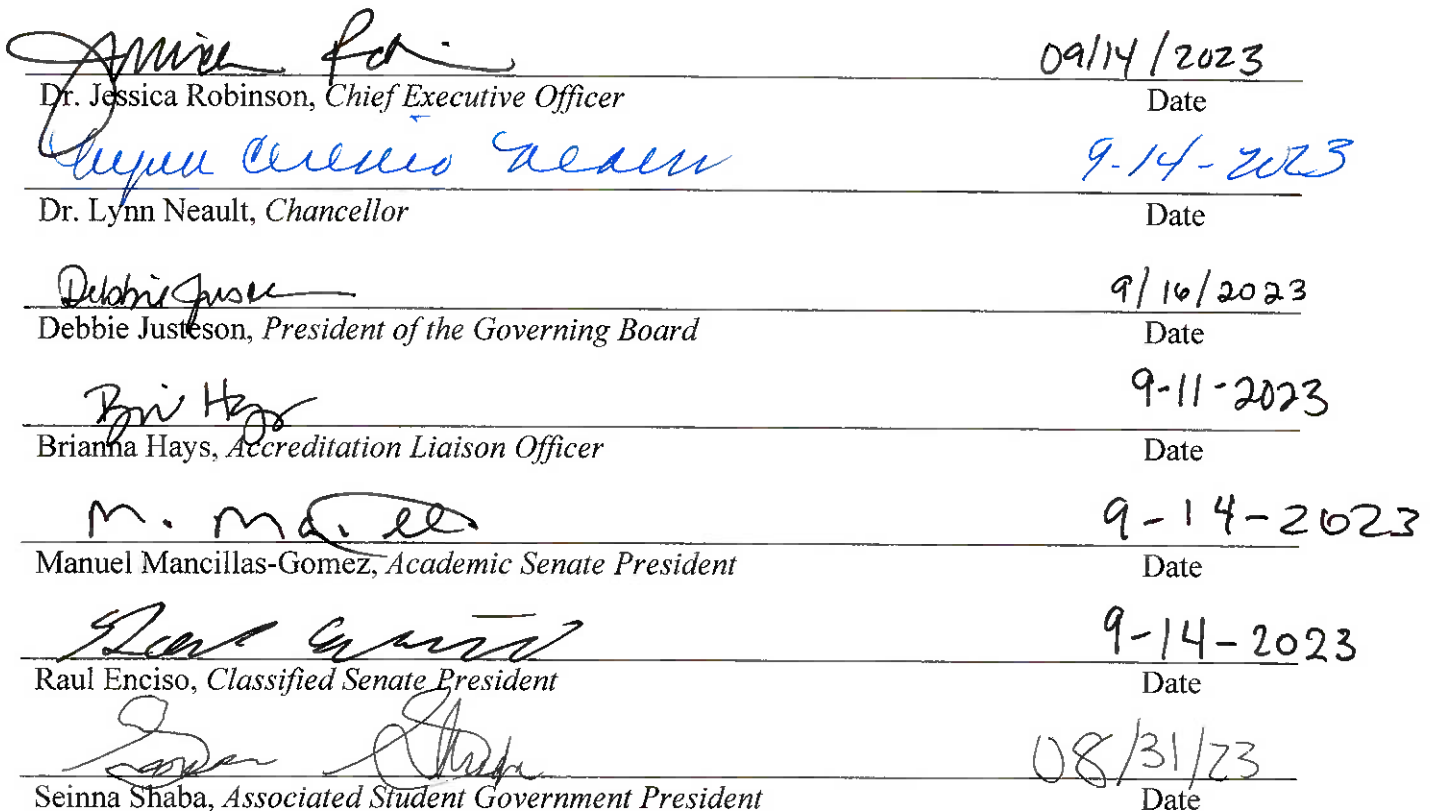 09/14/2023
Dr. Jessica Robinson, Chief Executive Officer Date
9-14-2023
Dr. Lynn Neault, Chancellor Date
9/16/2023
Debbie Justeson, President of the Governing Board Date
9-11-2023
Brianna Hays, Accreditation Liaison Officer Date
M. 9-14-2023
Manuel Mancillas-Gomez, Academic Senate President Date
9-14-2023
Raul Enciso, Classified Senate President Date
08/31/23
Seinna Shaba, Associated Student Government President Date